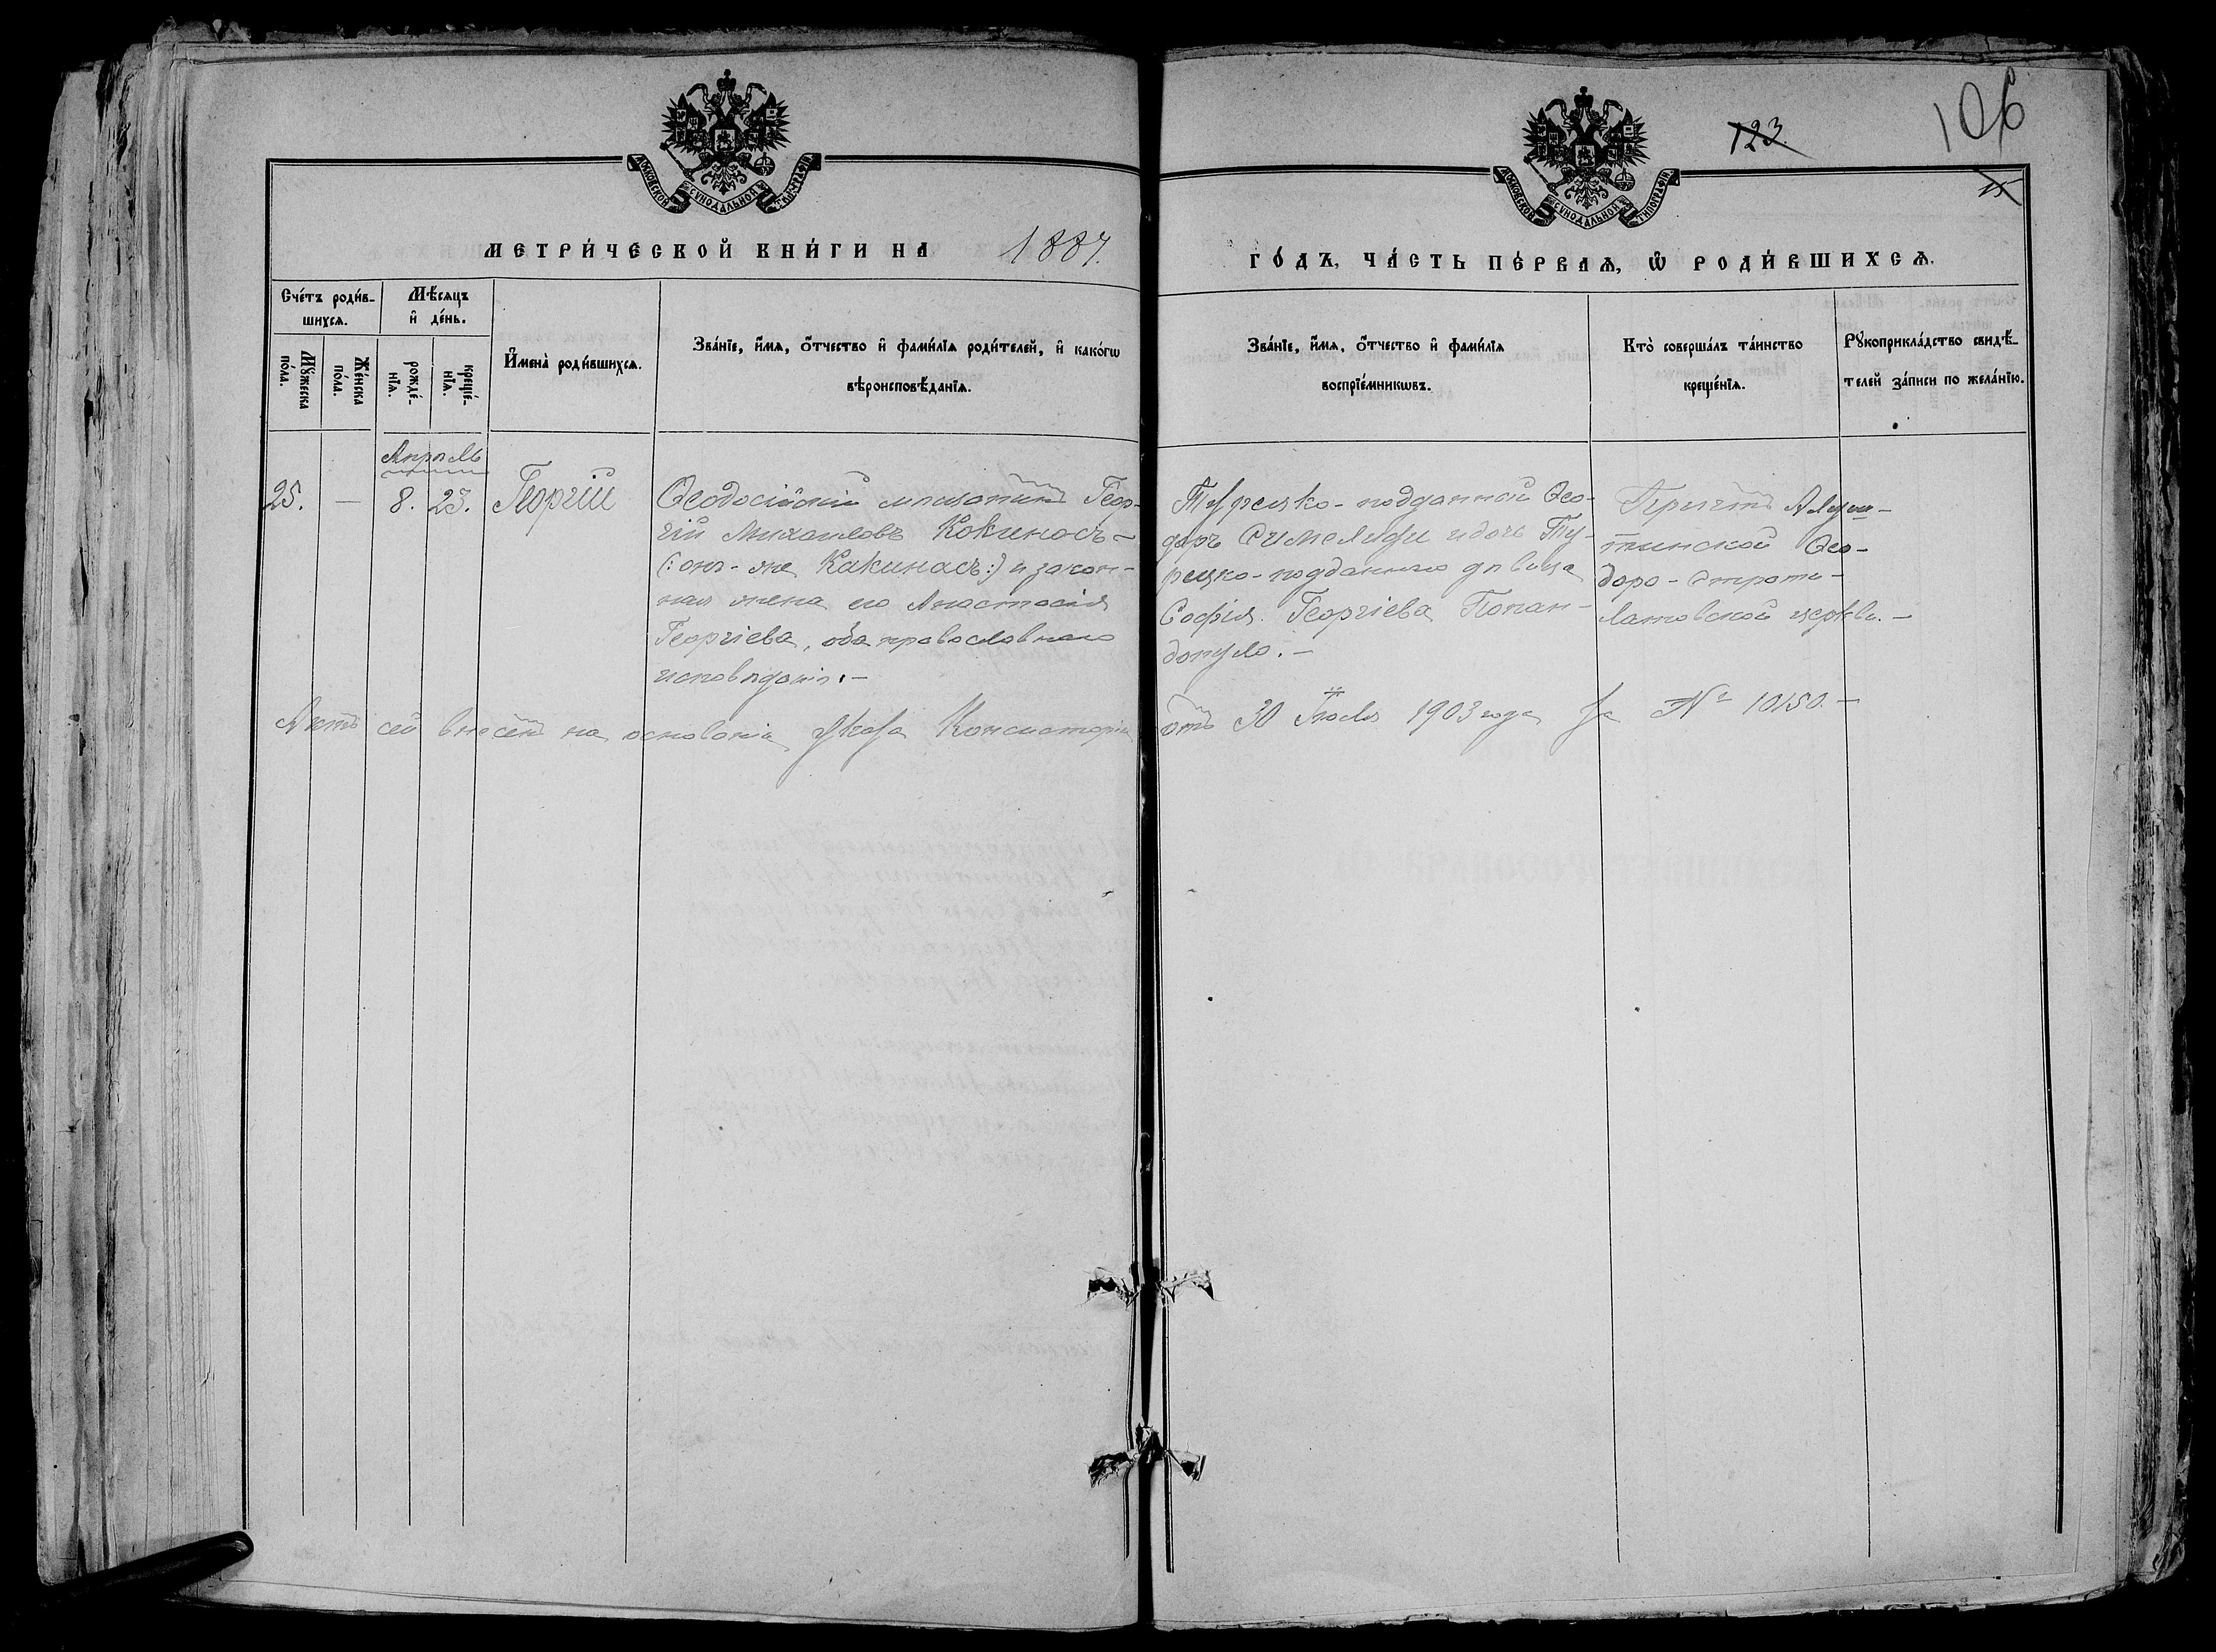 123.
106
МОСКОВСКОЙ СѴНОДАЛЬНОЙ ТИПОГРАФІИ
МОСКОВСКОЙ СѴНОДАЛЬНОЙ ТИПОГРАФІИ
МЕТРИ́ЧЕСКОЙ КНИ́ГИ НА 1887.
ГО́ДЪ, ЧА́СТЬ ПЕ́РВАѦ, Ѡ҆ РОДИ́ВШИХСѦ.
Сче́тъ роди́в-
шихсѧ.
Мꙋ́жеска
по́ла.
Же́нска
по́ла.
Мѣ́сѧцъ
и҆ де́нь.
рожде́-
нїѧ.
креще́-
нїѧ.
И҆мена̀ роди́вшихсѧ.
Зва́нїе, и҆́мѧ, ѻ҆́тчество и҆ фами́лїѧ роди́телей, и҆ како́гѡ
вѣроисповѣ́данїѧ.
Зва́нїе, и҆́мѧ, ѻ҆́тчество и҆ фами́лїѧ
воспрїе́мникѡвъ.
Кто̀ соверша́лъ та́инство
креще́нїѧ.
Рꙋкоприкла́дство свидѣ́-
телей за́писи по жела́нїю.
Апрѣль
25. — 8. 23. Георгій
Ѳеодосійскій мѣщанинъ Геор-
гій Михаиловъ Кокиносъ-
(: онъ-же Какинасъ:) и закон-
ная жена его Анастасія
Георгіева, оба православнаго
исповѣданія.—
Турецко-подданной Ѳео-
доръ Симелиди и дочь Ту-
рецко-подданнаго дѣвица
Софія Георгіева Попан-
допуло.—
Причтъ Алуш-
тинской Ѳео-
доро-Страти-
латовской церкви.—
Актъ сей внесенъ на основаніи указа Консисторіи отъ 30 Іюля 1903 года за № 10150.—